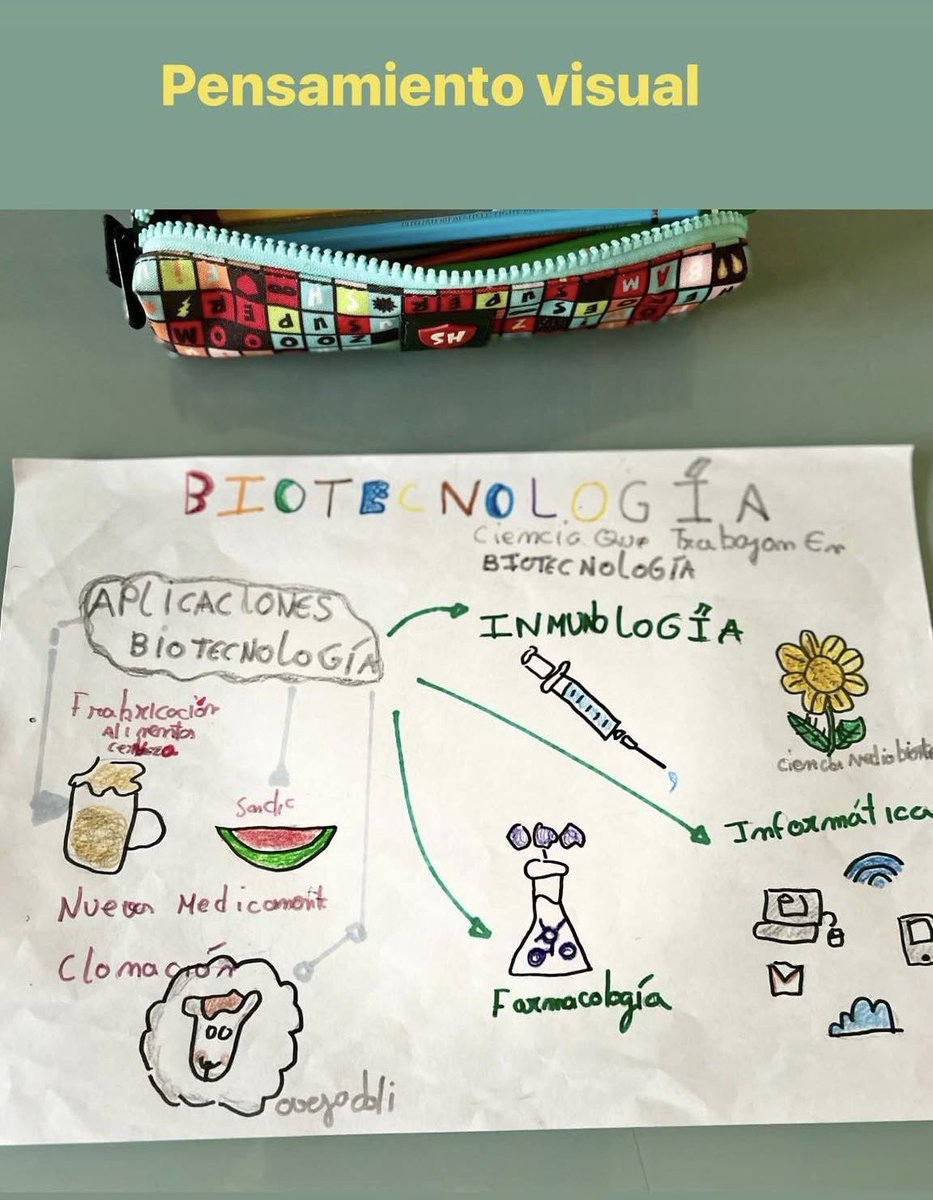 Pensamiento visual
SH
BIOTECNOLOGÍA
Ciencia Que Trabajan En
BIOTECNOLOGÍA
APLICACIONES
BIOTECNOLOGÍA
INMUNOLOGÍA
Frabricación
Alimentos
cerveza
Sandic
Nuevos Medicament
Clomación
ovejadoli
Farmacología
Informática
Ciencias Medio